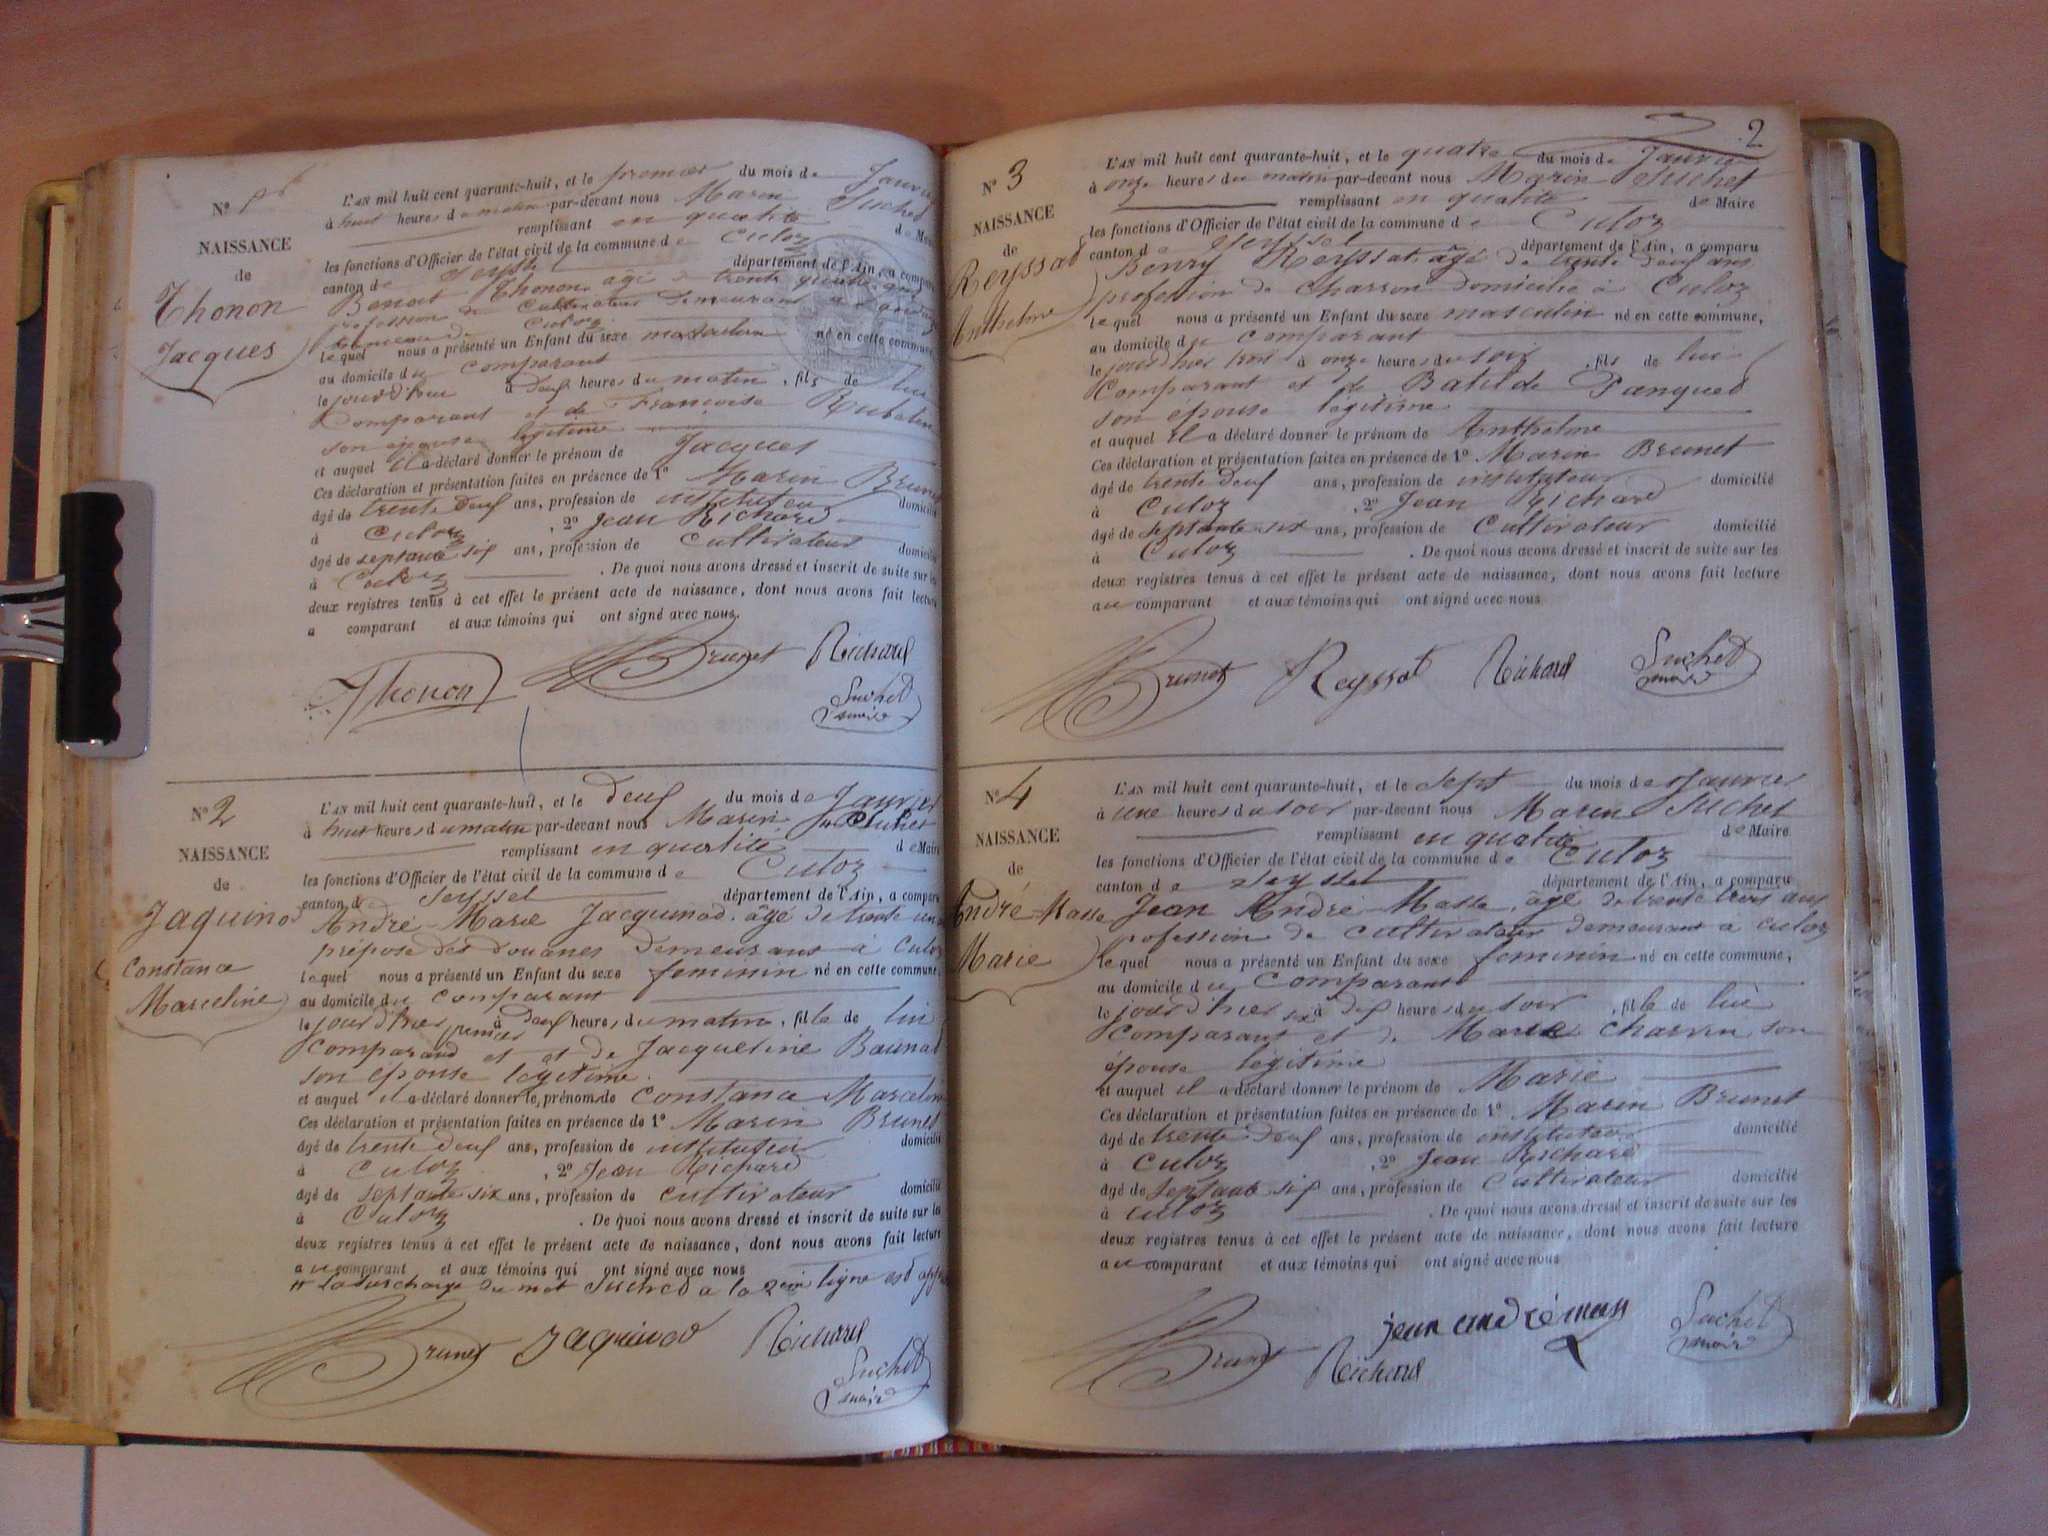 N° 1er
NAISSANCE
de
Thonon
Jacques
L'AN mil huit cent quarante-huit, et le premier du mois de Janvier
à huit heures du matin par-devant nous Marin Suchet
remplissant en qualité de Maire
les fonctions d'Officier de l'état civil de la commune de Culoz
canton de Seyssel département de l'Ain, a comparu
Benoit Thonon âgé de trente quatre ans
profession de Cultivateur demeurant a
hameau de Culoz
lequel nous a présenté un Enfant du sexe masculin né en cette commune,
au domicile du comparant
le jourd'hui à deux heures du matin, fils de lui
Comparant et de Françoise
son épouse légitime
et auquel il a déclaré donner le prénom de Jacques
Ces déclaration et présentation faites en présence de 1° Marin Brunet
âgé de trente deux ans, profession de instituteur domicilié
à Culoz , 2° Jean Richard
âgé de septante six ans, profession de Cultivateur domicilié
à Culoz . De quoi nous avons dressé et inscrit de suite sur les
deux registres tenus à cet effet le présent acte de naissance, dont nous avons fait lecture
a comparant et aux témoins qui ont signé avec nous.
Thonon Brunet Richard
Suchet
maire
N° 2
NAISSANCE
de
Jaquinod
Constance
Marceline
L'AN mil huit cent quarante-huit, et le deux du mois de Janvier
à huit heures du matin par-devant nous Marin Suchet
remplissant en qualité de Maire
les fonctions d'Officier de l'état civil de la commune de Culoz
canton de Seyssel département de l'Ain, a comparu
André-Marie Jacquinod, âgé de trente un
préposé des douanes demeurant à Culoz
lequel nous a présenté un Enfant du sexe feminin né en cette commune,
au domicile du comparant
le jour d'hier premier à deux heures du matin, fille de lui
comparand et et de Jacqueline
son épouse légitime.
et auquel il a déclaré donner le prénom de Constance Marceline
Ces déclaration et présentation faites en présence de 1° Marin Brunet
âgé de trente deux ans, profession de instituteur domicilié
à Culoz , 2° Jean Richard
âgé de septante six ans, profession de cultivateur domicilié
à Culoz . De quoi nous avons dressé et inscrit de suite sur les
deux registres tenus à cet effet le présent acte de naissance, dont nous avons fait lecture
au comparant et aux témoins qui ont signé avec nous
La surcharge du mot Suchet a la 2em ligne est app
Brunet Jaquinod Richard
Suchet
maire
2
N° 3
NAISSANCE
de
Reyssat
Anthelme
L'AN mil huit cent quarante-huit, et le quatre du mois de Janvier
à onze heures du matin par-devant nous Marin Suchet
remplissant en qualité de Maire
les fonctions d'Officier de l'état civil de la commune de Culoz
canton de Seyssel département de l'Ain, a comparu
Benry Reyssat âgé de trente deux ans
profession de Charron domicilié à Culoz
lequel nous a présenté un Enfant du sexe masculin né en cette commune,
au domicile du comparant
le jour d'hier trois à onze heures du soir , fils de lui
Comparant et de Batilde Panqued
son épouse légitime
et auquel il a déclaré donner le prénom de Anthelme
Ces déclaration et présentation faites en présence de 1° Marin Brunet
âgé de trente deux ans, profession de instituteur domicilié
à Culoz , 2° Jean Richard
âgé de septante six ans, profession de Cultivateur domicilié
à Culoz . De quoi nous avons dressé et inscrit de suite sur les
deux registres tenus à cet effet le présent acte de naissance, dont nous avons fait lecture
au comparant et aux témoins qui ont signé avec nous
Brunet Reyssat Richard Suchet
maire
N° 4
NAISSANCE
de
André-Masse
Marie
L'AN mil huit cent quarante-huit, et le Sept du mois de Janvier
à une heures du soir par-devant nous Marin Suchet
remplissant en qualité de Maire
les fonctions d'Officier de l'état civil de la commune de Culoz
canton de Seyssel département de l'Ain, a comparu
Jean André-Masse, âgé de trente trois ans
profession de cultivateur demeurant a Culoz
lequel nous a présenté un Enfant du sexe feminin né en cette commune,
au domicile du Comparant
le jour d'hier six à deux heures du soir , fille de lui
Comparant et de Marie Charvin son
épouse légitime
et auquel il a déclaré donner le prénom de Marie
Ces déclaration et présentation faites en présence de 1° Marin Brunet
âgé de trente deux ans, profession de instituteur domicilié
à Culoz , 2° Jean Richard
âgé de septante six ans, profession de Cultivateur domicilié
à Culoz . De quoi nous avons dressé et inscrit de suite sur les
deux registres tenus à cet effet le présent acte de naissance, dont nous avons fait lecture
au comparant et aux témoins qui ont signé avec nous
Brunet Richard jean andré mass Suchet
maire